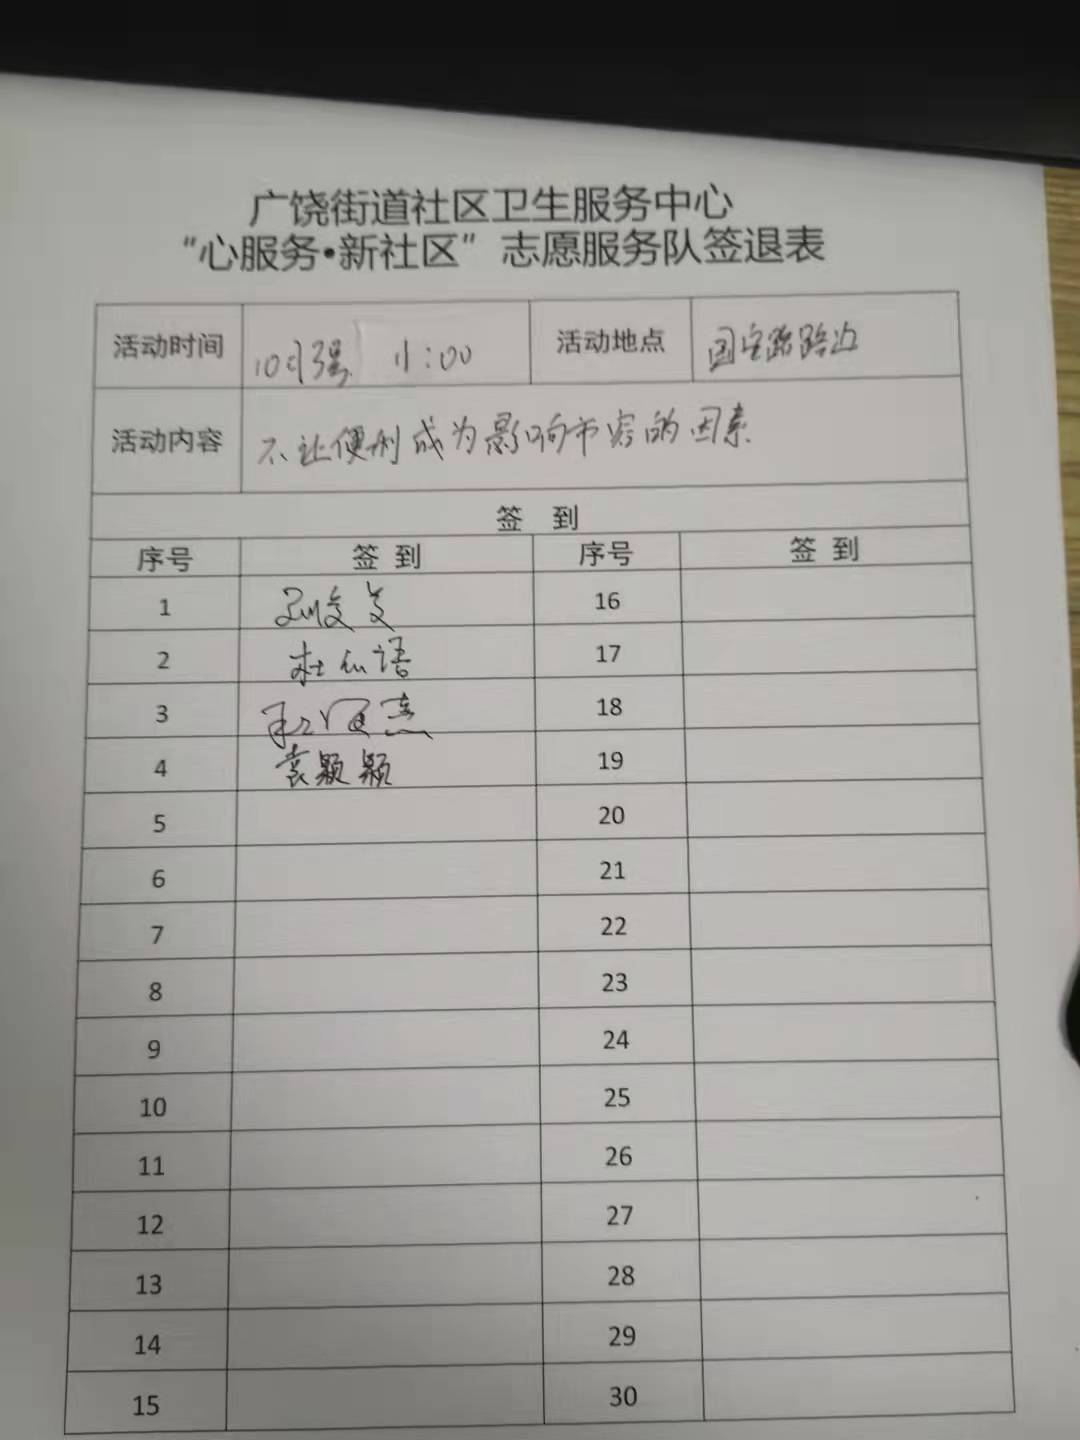 广饶街道社区卫生服务中心
“心服务•新社区”志愿服务队签退表
活动时间 10月 11:00 活动地点 路路边
活动内容 不让便利成为影响市容的因素
签 到
序号 签 到 序号 签 到
1 16
2 杜 语 17
3 18
4 袁颖颖 19
5 20
6 21
7 22
8 23
9 24
10 25
11 26
12 27
13 28
14 29
15 30